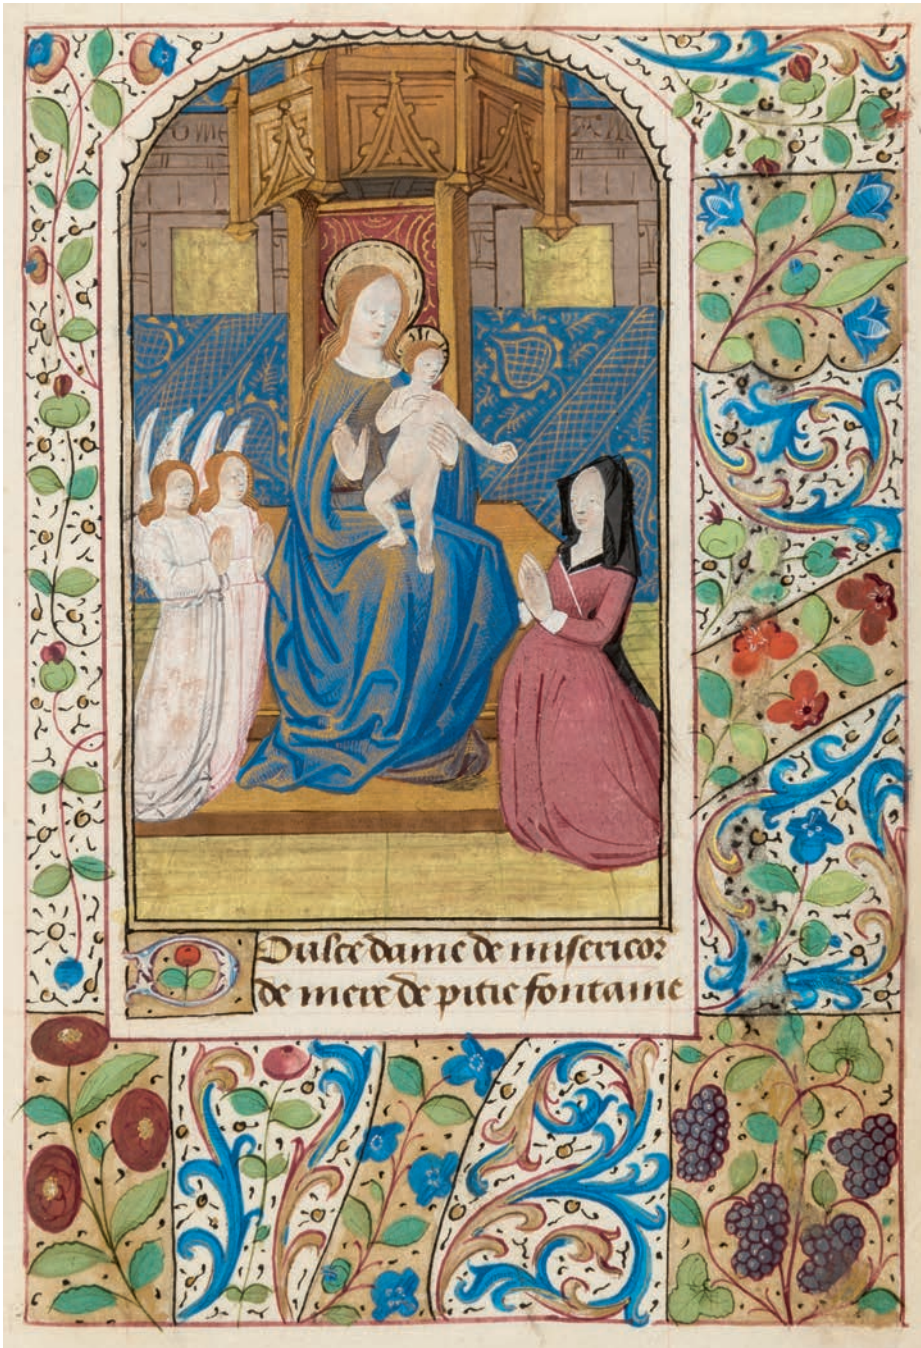 DOulce dame de misericor
de mere de pitie fontaine